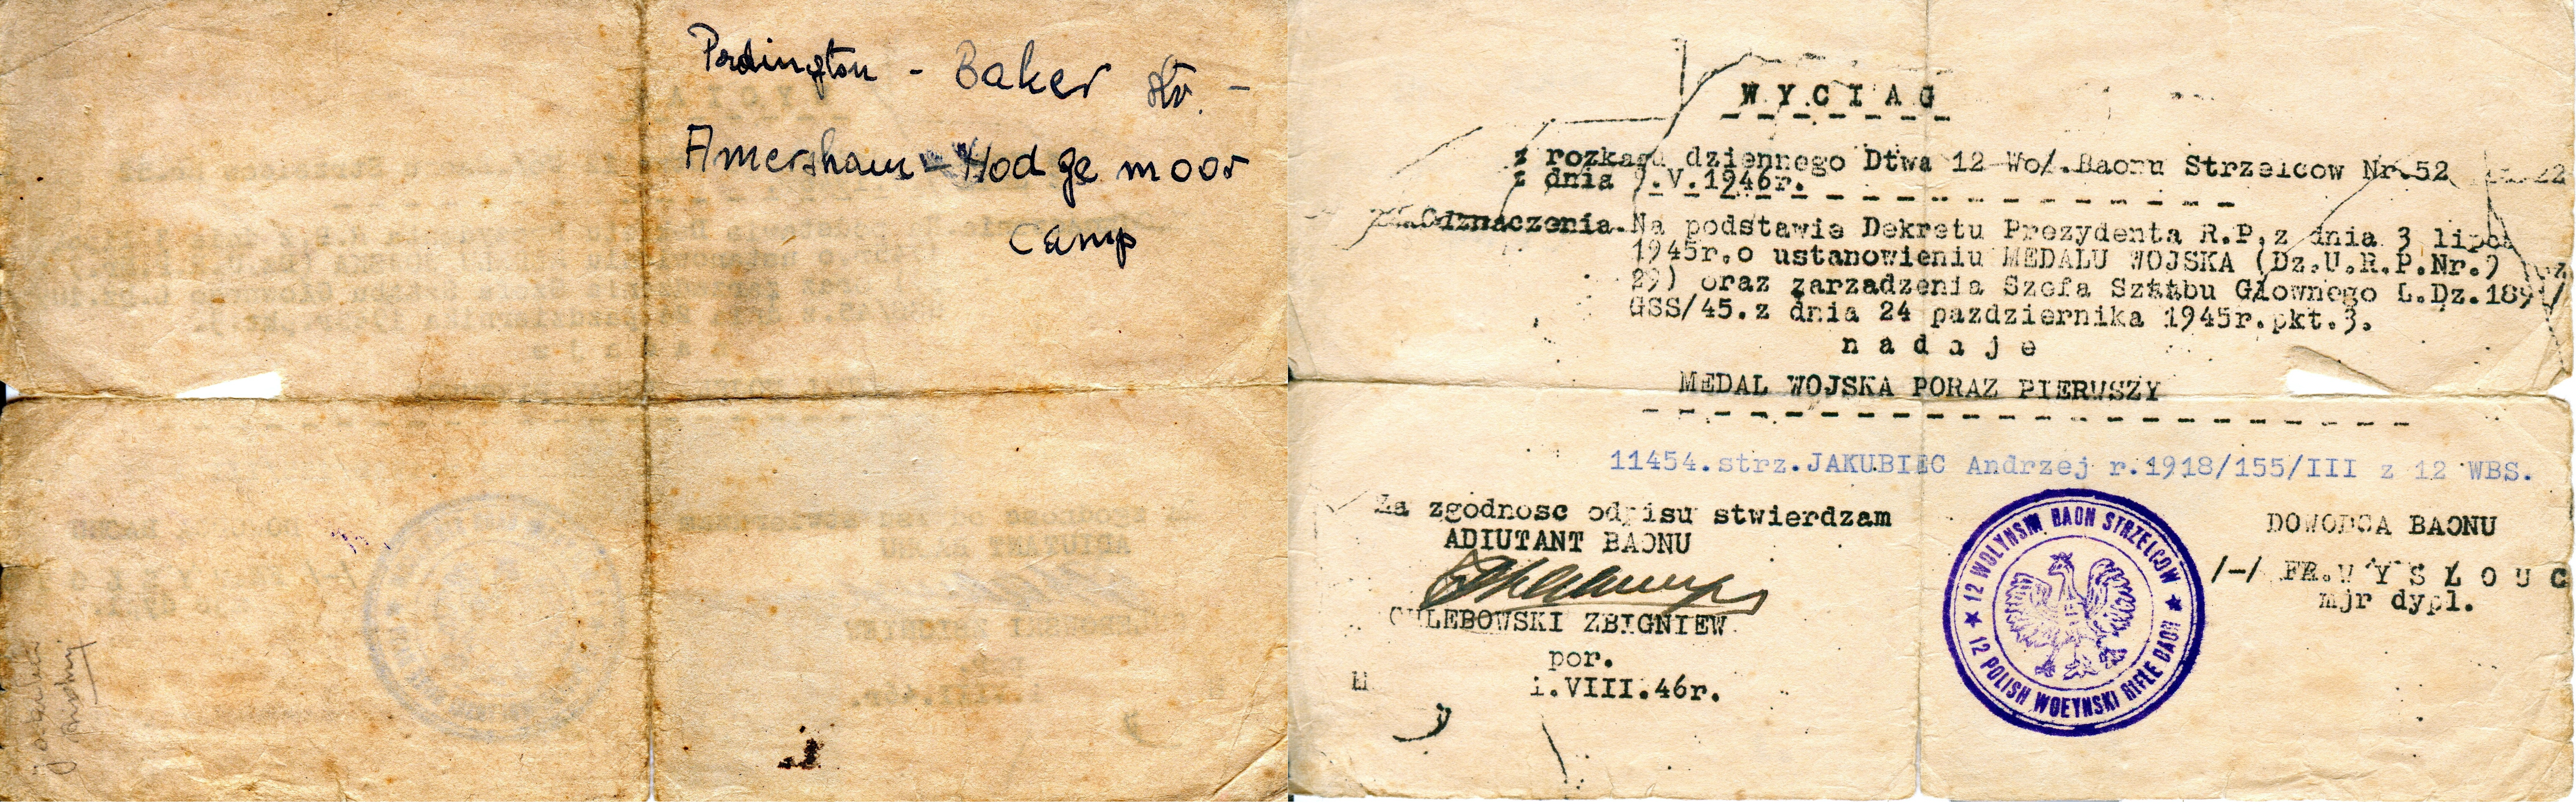 Padington - Baker Str. -
Amersham - Hodgemoor
Camp
WYCIAG
z rozkazu dziennego Dtwa 12 Woł. Baonu Strzelcow Nr.52
z dnia .V.1946r.
Odznaczenia. Na podstawie Dekretu Prezydenta R.P. z dnia 3 lipca
1945r. o ustanowieniu MEDALU WOJSKA (Dz.U.R.P.Nr.9
29) oraz zarzadzenia Szefa Sztabu Głownego L.Dz.1891/
GSS/45. z dnia 24 pazdziernika 1945r. pkt.3.
n a d a j e
MEDAL WOJSKA PORAZ PIERWSZY
11454. strz. JAKUBIEC Andrzej r.1918/155/III z 12 WBS.
Za zgodnosc odpisu stwierdzam
ADIUTANT BAONU
CHLEBOWSKI ZBIGNIEW
por.
1.VIII.46r.
12 WOŁYNSKI BAON STRZELCOW
12 POLISH WOŁYNSKI RIFLE BAON
DOWODCA BAONU
/-/ FR. W Y S Ł O U C
mjr dypl.